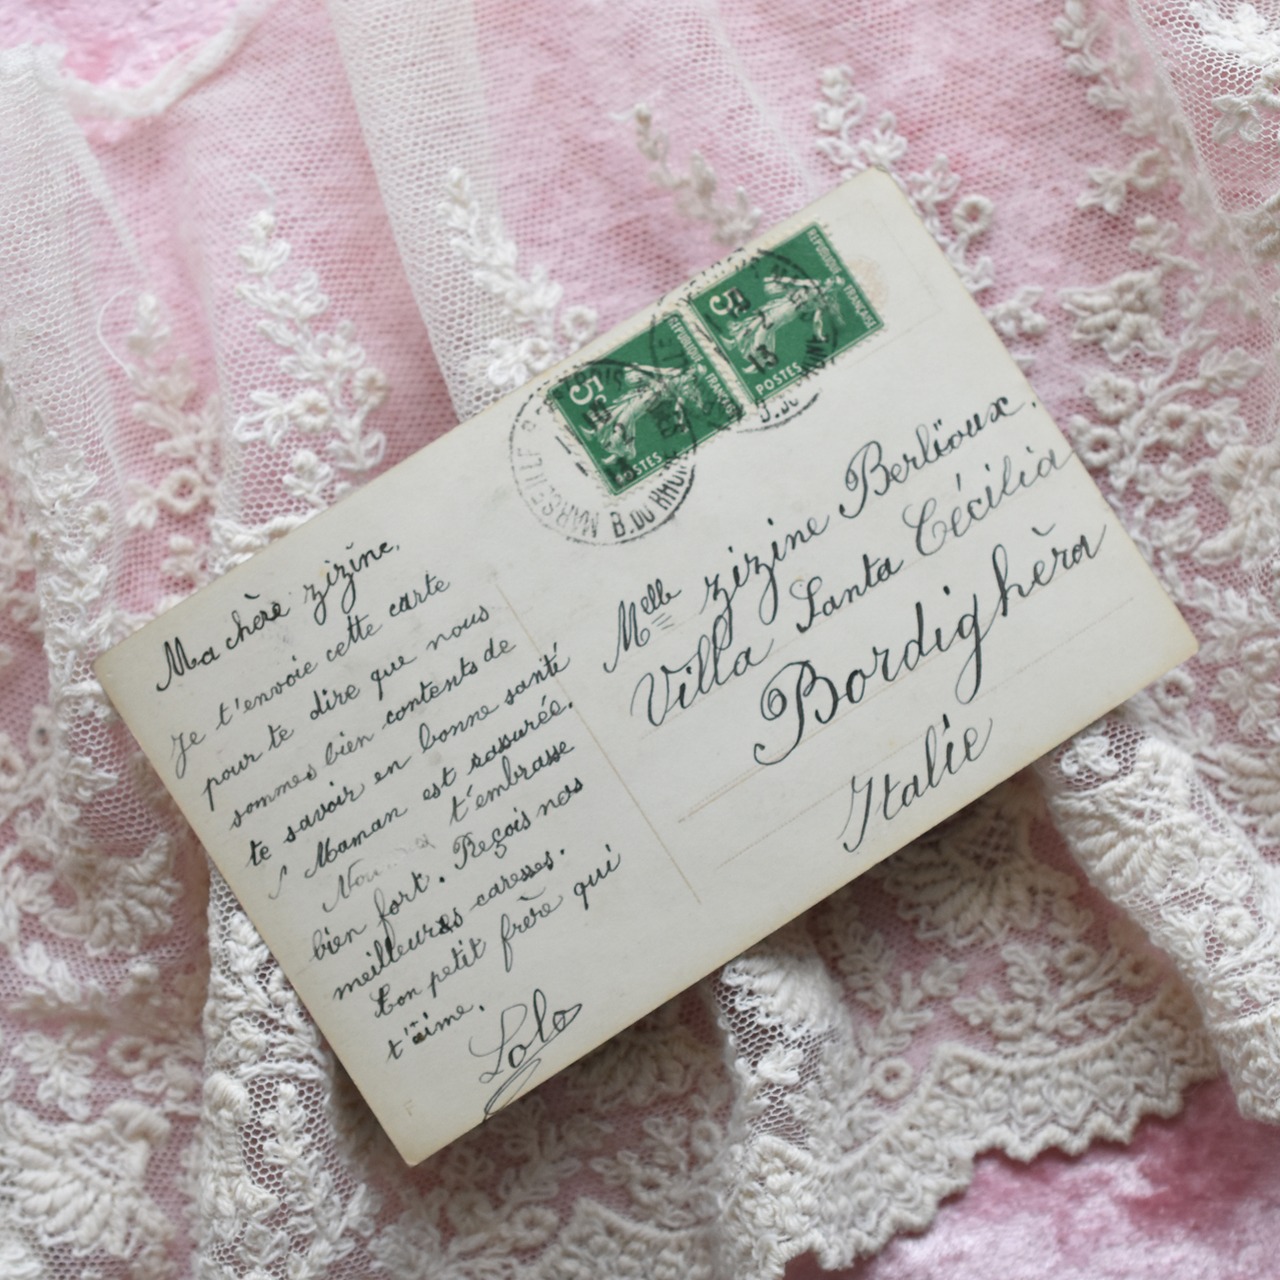 Ma chère zizine,
Je t'envoie cette carte
pour te dire que nous
sommes bien contents de
te savoir en bonne santé
Maman est rassurée.
t'embrasse
bien fort. Reçois nos
meilleures caresses.
ton petit frère qui
t'aime.
Lolo
REPUBLIQUE FRANÇAISE
5
POSTES
REPUBLIQUE FRANÇAISE
5c
POSTES
13
MARSEILLE
B.DU RHONE
Melle zizine Berlioux.
Villa Santa Cécilia
Bordighèra
Italie